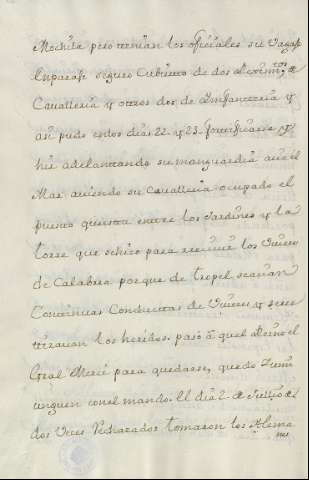 Mochila pero tenian los ofiçiales su Vagaje
en paraje seguro Cubierto de dos Reximtos de
Cavalleria y otros dos de Infanteria y
asi pudo entos dias 22. y 23. fortificarse y
hir adelantando su manguardia aun el
Mar aviendo su Cavalleria ocupado el
puesto que esta entre los Jardines y la
torre que se hiço para recivir los Viveres
de Calabria porque de tropel seavian
Continuas Conductas de Viveres y se re
tiravan los heridos. pasó a quel Reino el
Gral Merci para quedarse, quedo Zum
iungen con el mando. El dia 2. de Jullio de
dos Veces Rechazados tomaron los Alema
nes